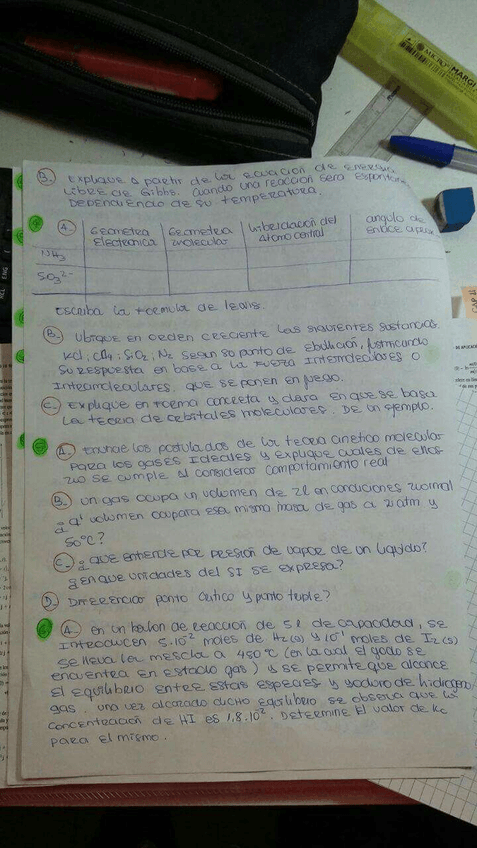 B. Explique a partir de la ecuacion de energia
Libre de Gibbs. Cuando una reacción será espontanea
Dependiendo de su temperatura.
A.
Geometria Electronica
Geometria Molecular
Hibridación del Atomo central
angulo de enlace aprox
NH3
SO3 2-
Escriba la formula de lewis.
B. Ubique en orden creciente las siguientes sustancias
KCl; CH4; SiO2; N2 segun su punto de ebullición, justificando
su respuesta en base a la fuerza Intermoleculares o
Intramoleculares que se ponen en juego.
C. Explique en forma concreta y clara en que se basa
la teoria de orbitales moleculares. De un ejemplo.
A. Enuncie los postulados de la teoria cinetico molecular
para los gases Ideales y explique cuales de ellos
no se cumple al considerar comportamiento real
B. Un gas ocupa un volumen de 2l en condiciones normal
¿Qué volumen ocupara esa misma masa de gas a 2 atm y
50°C?
C. ¿Que entiende por presión de vapor de un liquido?
¿En que unidades del SI se expresa?
D) Diferenciar punto critico y punto triple?
A. En un balon de reacción de 5l de capacidad, se
introducen 5.10-2 moles de H2(g) y 10-1 moles de I2(s)
se lleva la mescla a 450°C (en la cual el yodo se
encuentra en estado gas) y se permite que alcance
El equilibrio entre estas especies y yoduro de hidrogeno
gas. una vez alcanzado dicho equilibrio se observa que la
concentracion de HI es 1,8.10-2. Determine el valor de Kc
para el mismo.